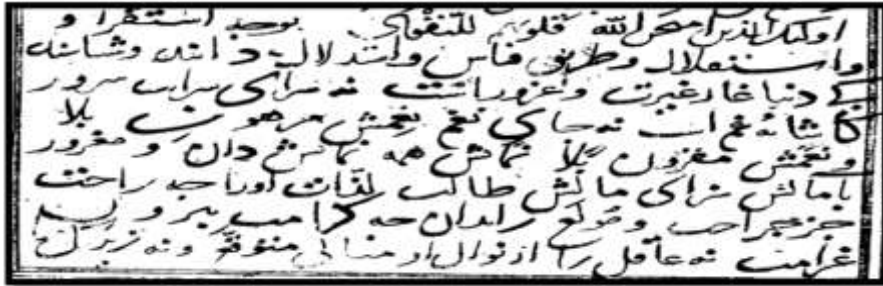 اولئک الذین امتحن الله قلوبهم للتقوی بوجد استقرا و
و استقلال و طریق قیاس و استدلال دانند و شناسند
که دنیا غار غیرت و غرور است نه سرای سراب سرور
کاشانه غم است نه جای نغم نعمش مرهون بلا
و نعمش مقرون همه دان و مغرور
بآمالش سزای مالش طالب لذات اورا جه راحت
جز جراحت و مولع را بدان جه کرامت بیرون
غرامت نه عاقل را از نوال او منالی متوقع و نه زیرک